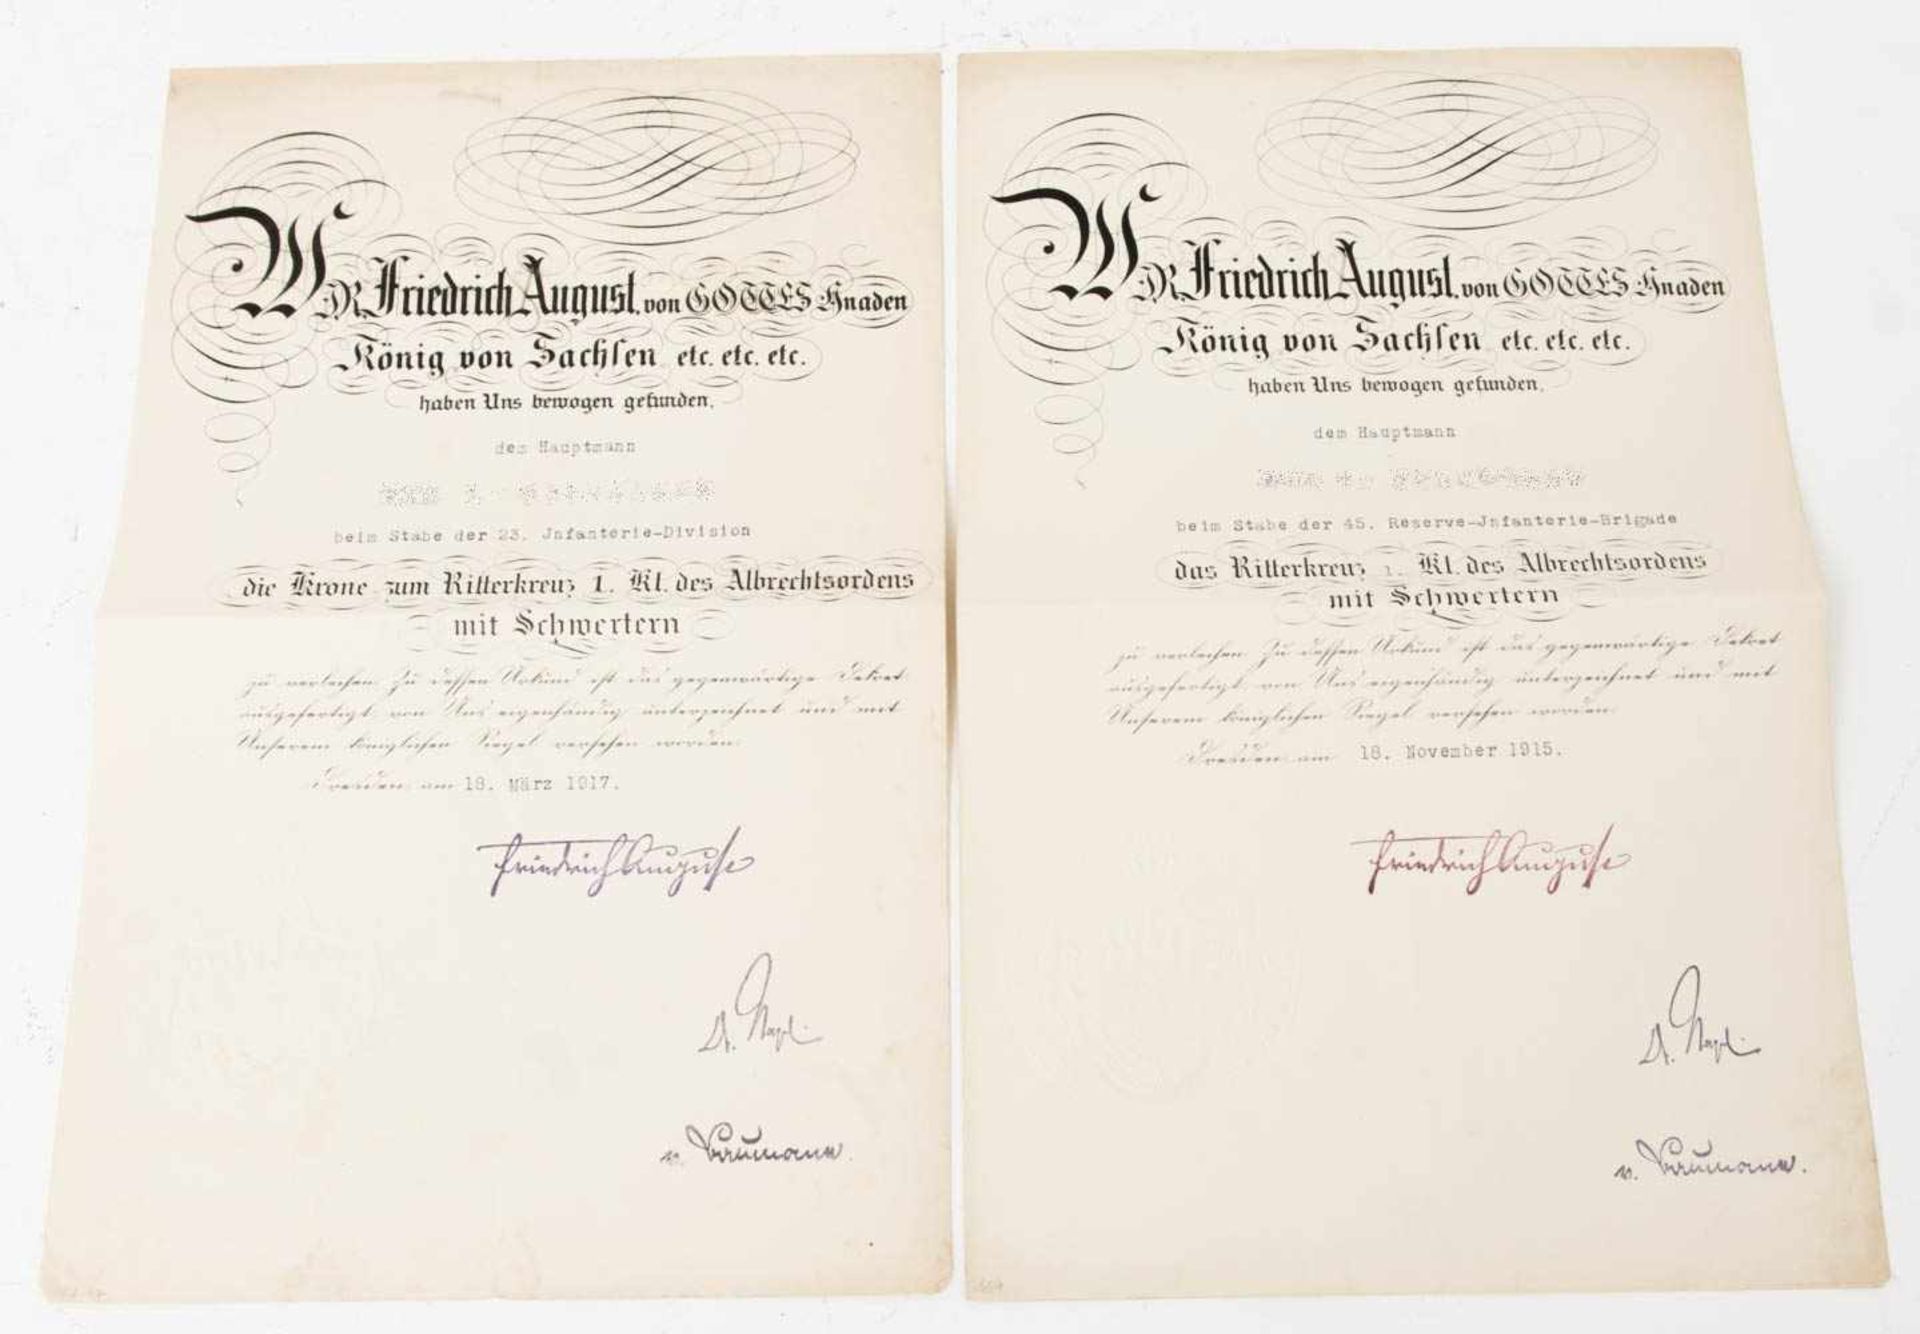 WIR Friedrich August, von GOTTES Gnaden
König von Sachsen etc. etc. etc.
haben Uns bewogen gefunden,
dem Hauptmann
beim Stabe der 23. Infanterie-Division
die Krone zum Ritterkreuz 1. Kl. des Albrechtsordens
mit Schwertern
zu verleihen. Zu dessen Urkund ist das gegenwärtige Dekret
ausgefertigt, von Uns eigenhändig unterzeichnet und mit
Unserem königlichen Siegel versehen worden.
Dresden, am 18. März 1917.
Friedrich August
v.
WIR Friedrich August, von GOTTES Gnaden
König von Sachsen etc. etc. etc.
haben Uns bewogen gefunden,
dem Hauptmann
beim Stabe der 45. Reserve-Infanterie-Brigade
das Ritterkreuz 1. Kl. des Albrechtsordens
mit Schwertern
zu verleihen. Zu dessen Urkund ist das gegenwärtige Dekret
ausgefertigt, von Uns eigenhändig unterzeichnet und mit
Unserem königlichen Siegel versehen worden.
Dresden, am 18. November 1915.
Friedrich August
v.